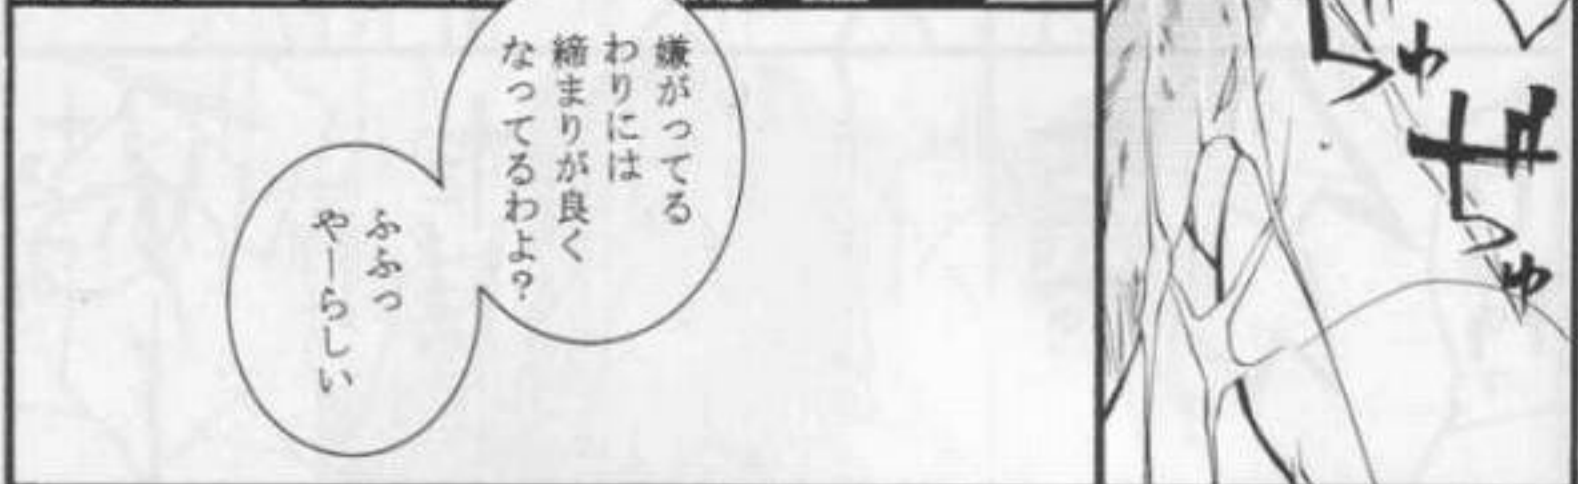 嫌がってる
わりには
締まりが良く
なってるわよ？
ふふっ
やーらしい